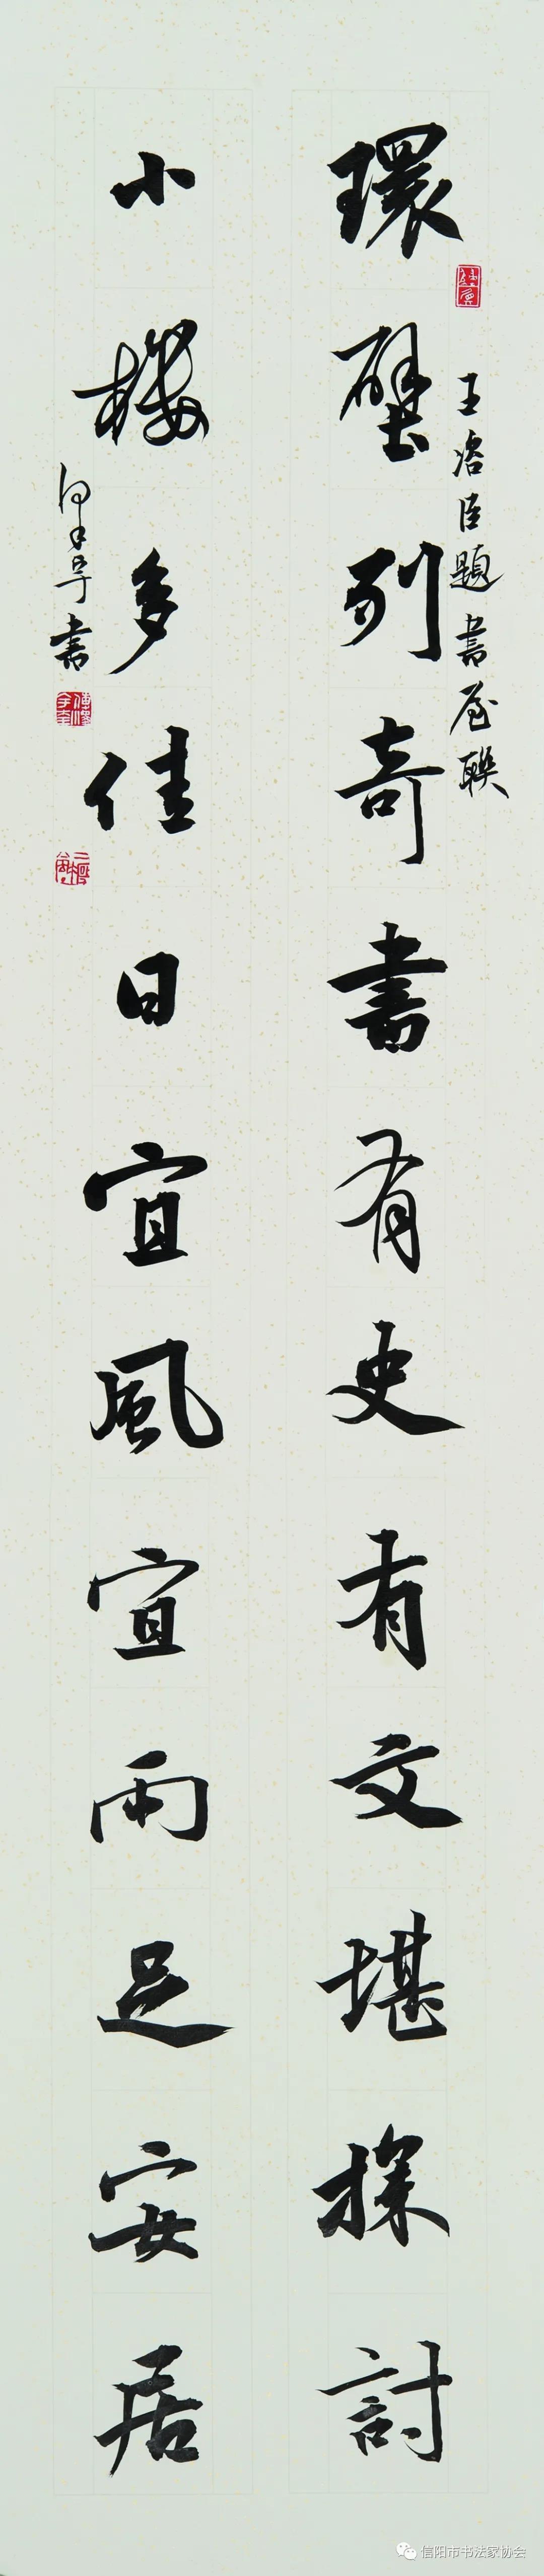 環壁列奇書有史有文堪探討
王浴臣題書屋聯
小樓多佳日宜風宜雨足安居
書
信阳市书法家协会